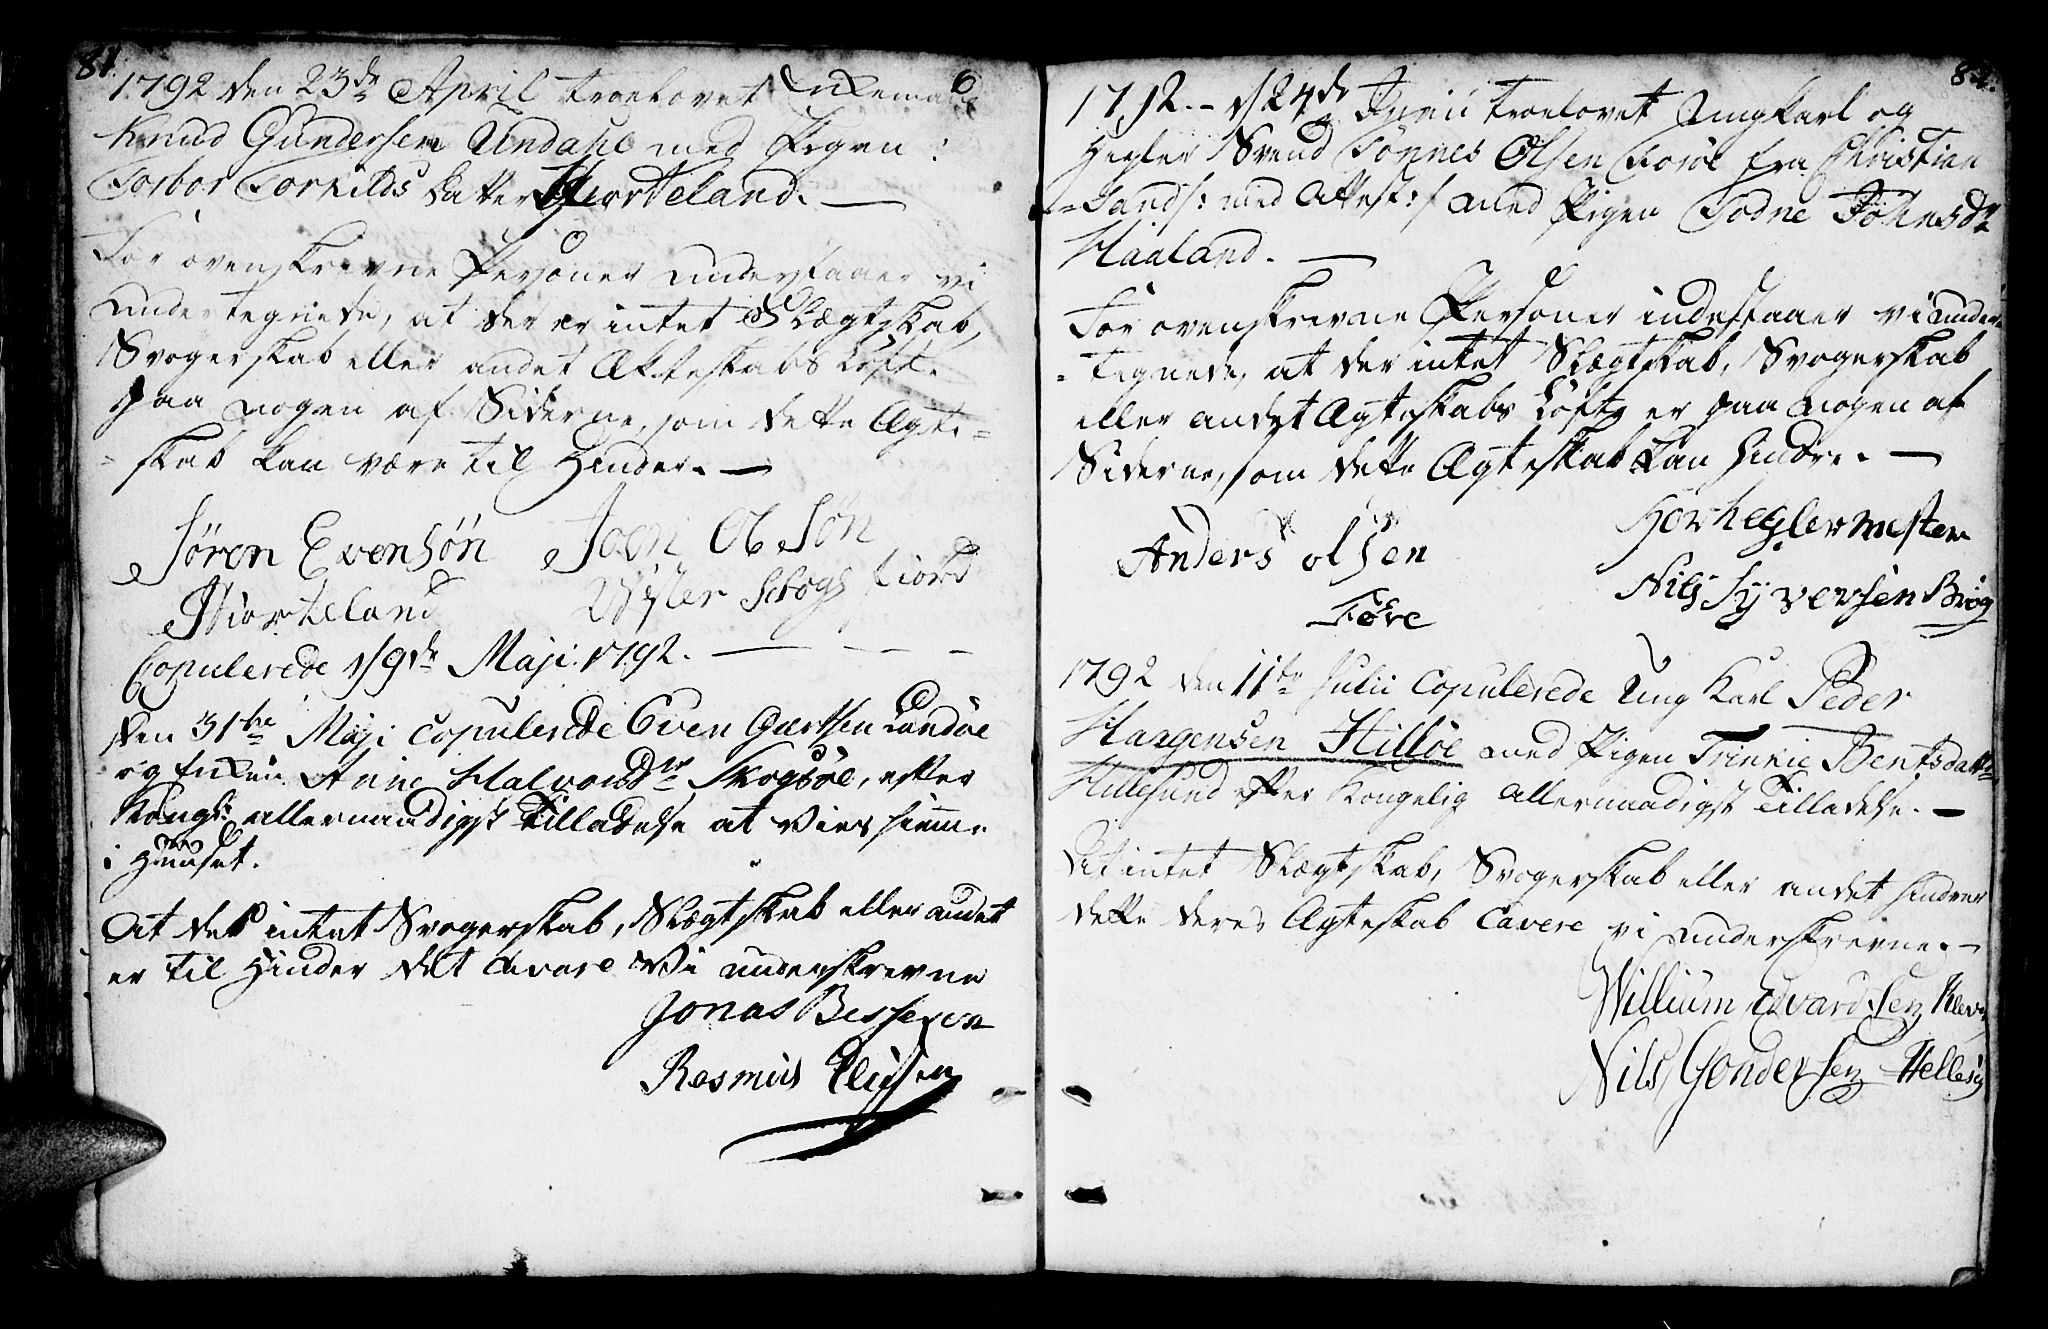 81.
1792 den 23de April troelovet Enkemand
Knud Gundersen Undahl med Pigen:
Torbor Torkilds Datter Hiorteland. —
For ovenskrevne Personer understaaer vi
undertegnede, at der er intet Slægtskab,
Svogerskab eller andet Ækteskabs Løfte
paa nogen af Siderne, som dette Ægte-
-skab kan være til Hinder. —
Søren Evensøn Joen Olsøn
Hiorteland Skogsfiord
Copulerede d 9de Maji 1792. —
den 31te Maji Copulerede Even Giertsen Landøe
og Enken Anne Halvorsdr Skogsøe, efter
Kongl: allernaadigst Tilladelse at Vies hiemme
i Huuset.
At det intet Svogerskab, Slægtskab eller andet
er til Hinder det Cavere Vi underskrevne
Jonas Bessesen
Rasmus Elissen
82.
1792. - d 24de Junii troelovet Ungkarl og
Hegler Svend Tønnes Olsen Forøe fra Christian
-Sand /: med Attest :/ med Pigen Todne Johnsdr
Haaland. —
For ovenskrevne Personer indestaaer vi under-
-tegnede, at der intet Slægtskab, Svogerskab
eller andet Ægteskabs Løfte er paa nogen af
Siderne, som dette Ægteskab kan hindre. —
Anders olsen Hørheglermester
Føre Nils Syversen Brøg
1792 den 11te Julii Copulerede Ung Karl Peder
Haagensen Hilløe med Pigen Trinnie Bentsdatter
Hillesund efter Kongelig allernaadigst Tilladelse. —
At intet Slægtskab, Svogerskab eller andet hindrer
dette deres Ægteskab Cavere vi underskrevne. —
Willium Edvardsen Kleven
Nils Gondersen Hellesu